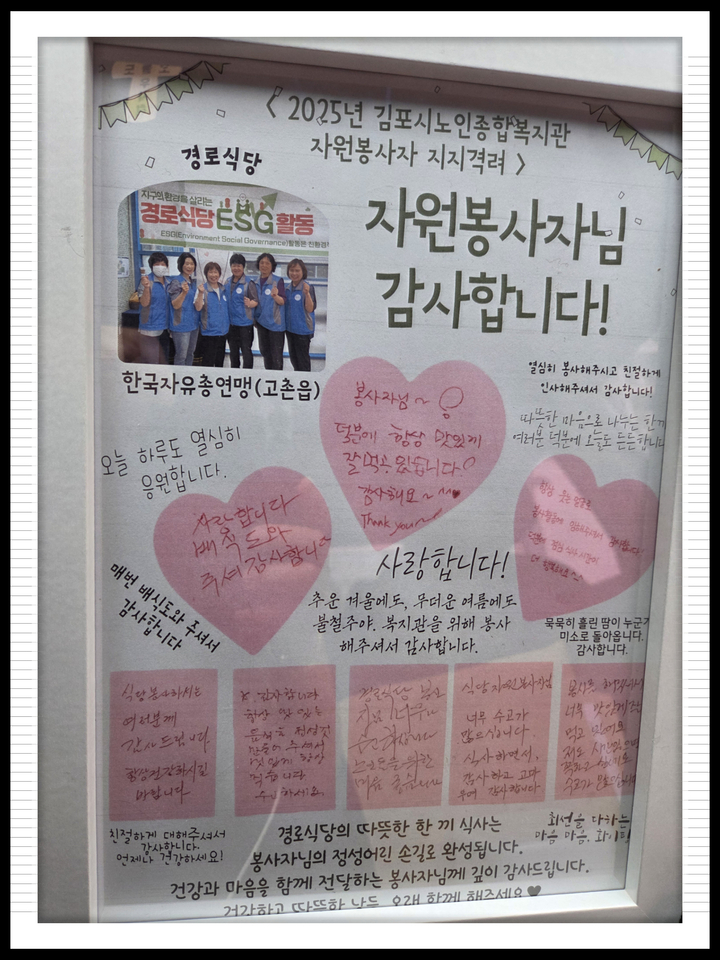 < 2025년 김포시노인종합복지관
자원봉사자 지지격려 >
경로식당
지구의 환경을 살리는
경로식당 ESG 활동
ESG(Environment Social Governance)활동은 친환경
한국자유총연맹(고촌읍)
자원봉사자님
감사합니다!
열심히 봉사해주시고 친절하게
인사해주셔서 감사합니다!
따뜻한 마음으로 나누는 한끼
여러분 덕분에 오늘도 든든합니다
봉사자님~
덕분에 항상 맛있게
잘 먹고 있습니다.
감사해요~ ^^♥
Thank you~
오늘 하루도 열심히
응원합니다.
사랑합니다
배식도와
주셔 감사합니다
항상 웃는 얼굴로
매번 배식도와 주셔서
감사합니다
사랑합니다!
추운 겨울에도, 무더운 여름에도
불철주야. 복지관을 위해 봉사
해주셔서 감사합니다.
묵묵히 흘린 땀이 누군가
미소로 돌아옵니다.
감사합니다.
식당봉사하시는
여러분께
감사드립니다
항상건강하시길
바랍니다
감사합니다
경로식당 봉사
식당자원봉사자님
너무 수고가
많으십니다.
식사하면서,
감사하고 고마
우며 감사합니다
친절하게 대해주셔서
감사합니다.
언제나 건강하세요!
경로식당의 따뜻한 한 끼 식사는
봉사자님의 정성어린 손길로 완성됩니다.
건강과 마음을 함께 전달하는 봉사자님께 깊이 감사드립니다.
건강하고 따뜻한 나눔, 오래 함께 해주세요♥